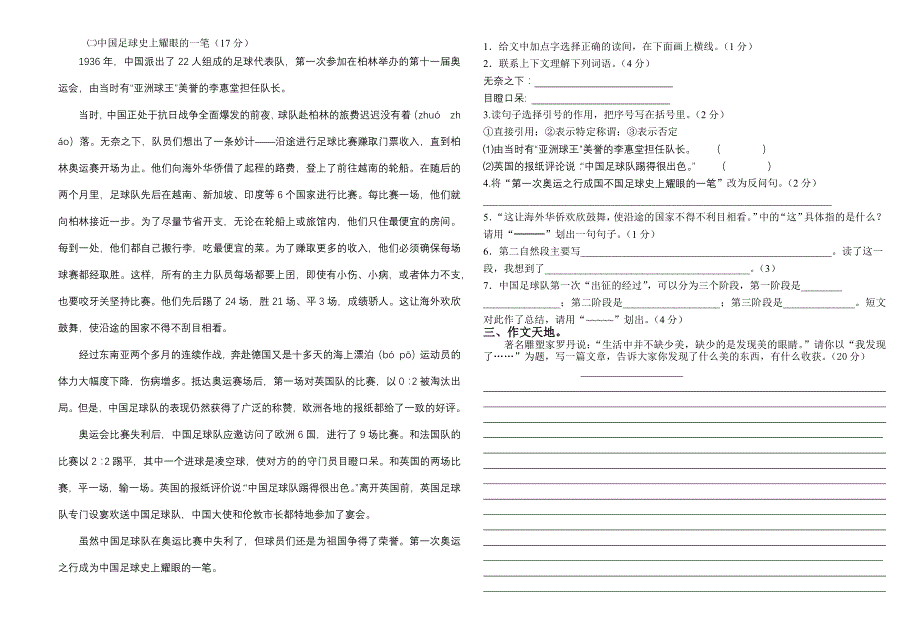 ㈡中国足球史上耀眼的一笔（17 分）
1936 年，中国派出了 22 人组成的足球代表队，第一次参加在柏林举办的第十一届奥
运会，由当时有“亚洲球王”美誉的李惠堂担任队长。
当时，中国正处于抗日战争全面爆发的前夜，球队赴柏林的旅费迟迟没有着(zhuó zh
áo）落。无奈之下，队员们想出了一条妙计——沿途进行足球比赛赚取门票收入，直到柏
林奥运赛开场为止。他们向海外华侨借了起程的路费，登上了前往越南的轮船。在随后的
两个月里，足球队先后在越南、新加坡、印度等 6 个国家进行比赛。每比赛一场，他们就
向柏林接近一步。为了尽量节省开支，无论在轮船上或旅馆内，他们只住最便宜的房间。
每到一处，他们都自己搬行李，吃最便宜的菜。为了赚取更多的收入，他们必须确保每场
球赛都经取胜。这样，所有的主力队员每场都要上囝，即使有小伤、小病，或者体力不支，
也要咬牙关坚持比赛。他们先后踢了 24 场，胜 21 场、平 3 场，成绩骄人。这让海外欢欣
鼓舞，使沿途的国家不得不刮目相看。
经过东南亚两个多月的连续作战，奔赴德国又是十多天的海上漂泊（bó pō）运动员的
体力大幅度下降，伤病增多。抵达奥运赛场后，第一场对英国队的比赛，以 0∶2 被淘汰出
局。但是，中国足球队的表现仍然获得了广泛的称赞，欧洲各地的报纸都给了一致的好评。
奥运会比赛失利后，中国足球队应邀访问了欧洲 6 国，进行了 9 场比赛。和法国队的
比赛以 2∶2 踢平，其中一个进球是凌空球，使对方的的守门员目瞪口呆。和英国的两场比
赛，平一场，输一场。英国的报纸评价说:“中国足球队踢得很出色。”离开英国前，英国足球
队专门设宴欢送中国足球队，中国大使和伦敦市长都特地参加了宴会。
虽然中国足球队在奥运比赛中失利了，但球员们还是为祖国争得了荣誉。第一次奥运
之行成为中国足球史上耀眼的一笔。
1．给文中加点字选择正确的读间，在下面画上横线。（1 分）
2．联系上下文理解下列词语。（4 分）
无奈之下：
目瞪口呆:
3.读句子选择引号的作用，把序号写在括号里。（2 分）
①直接引用；②表示特定称谓；③表示否定
⑴由当时有“亚洲球王”美誉的李惠堂担任队长。 （ ）
⑵英国的报纸评论说:“中国足球队踢得很出色。” （ ）
4.将“第一次奥运之行成国不国足球史上耀眼的一笔”改为反问句。（2 分）
5．“这让海外华侨欢欣鼓舞，使沿途的国家不得不利目相看。”中的“这”具体指的是什么？
请用“﹏﹏”划出一句句子。（1 分）
6．第二自然段主要写____。读了这一
段，我想到了____。（3）
7．中国足球队第一次“出征的经过”，可以分为三个阶段，第一阶段是____
____；第二阶段是____；第三阶段是____。短文
对此作了总结，请用“~~~~~”划出。（4 分）
三、作文天地。
著名雕塑家罗丹说；“生活中并不缺少美，缺少的是发现美的眼睛。”请你以“我发现
了……”为题，写一篇文章，告诉大家你发现了什么美的东西，有什么收获。（20 分）